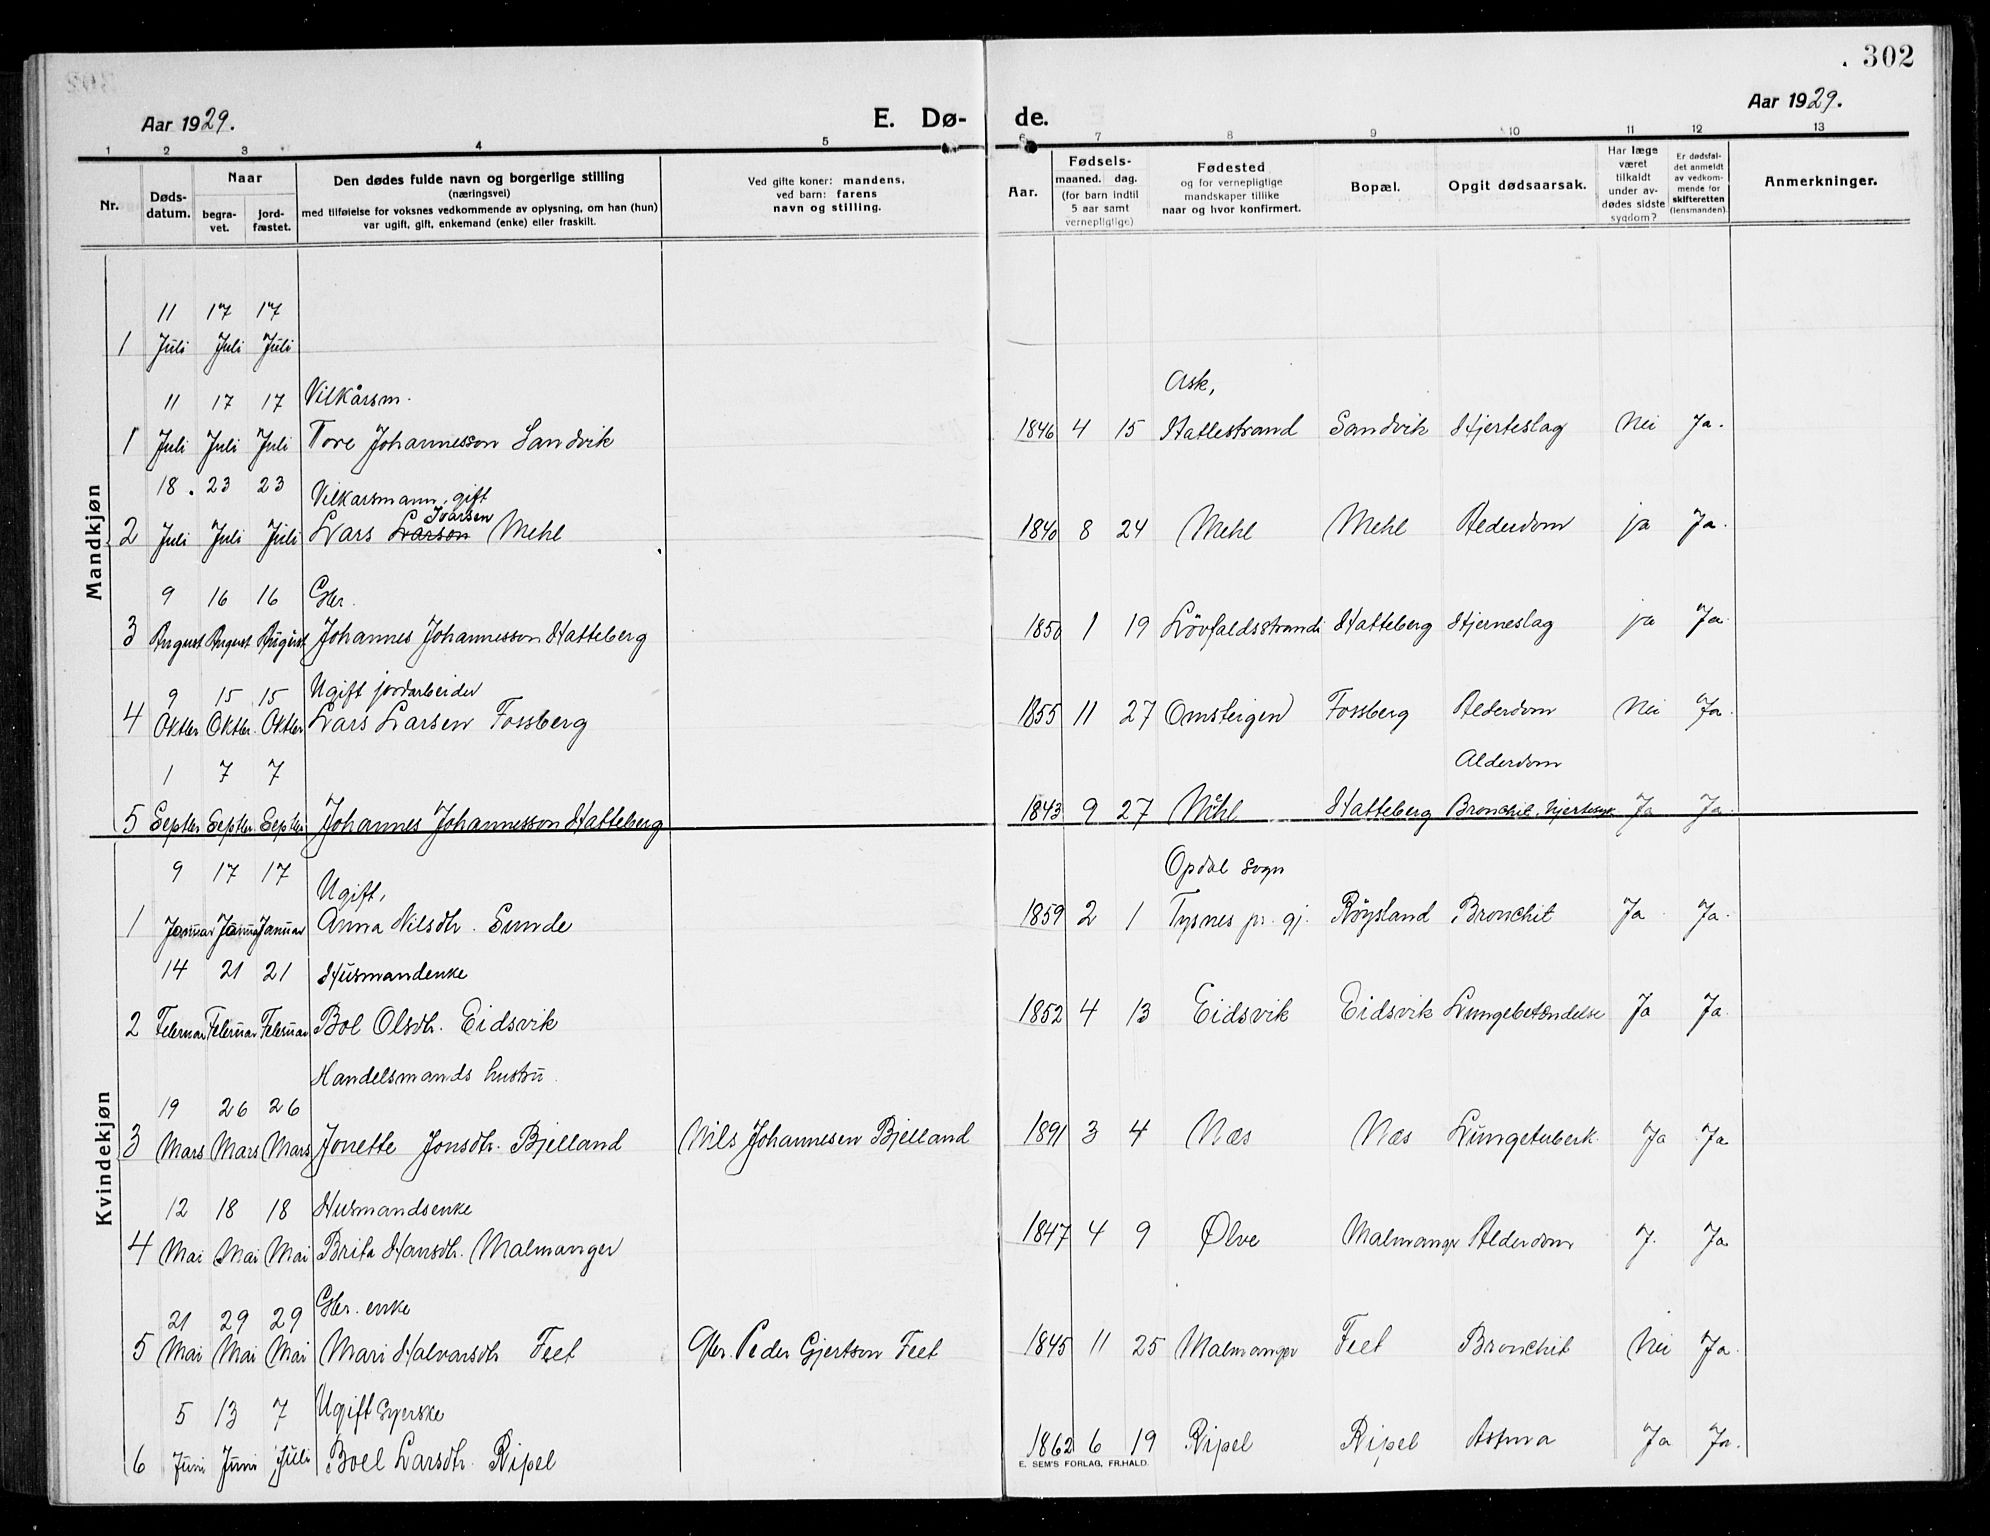 302
Aar 1929.
E. Dø- de.
Aar 1929.
1 2 3 4 5 6 7 8 9 10 11 12 13
Nr.
Døds-
datum.
Naar
begra-
vet.
jord-
fæstet.
Den dødes fulde navn og borgerlige stilling
(næringsvei)
med tilføielse for voksnes vedkommende av oplysning, om han (hun)
var ugift, gift, enkemand (enke) eller fraskilt.
Ved gifte koner: mandens,
ved barn: farens
navn og stilling.
Aar.
Fødsels-
maaned. dag.
(for barn indtil
5 aar samt
vernepligtige)
Fødested
og for vernepligtige
mandskaper tillike
naar og hvor konfirmert.
Bopæl.
Opgit dødsaarsak.
Har læge
været
tilkaldt
under av-
dødes sidste
sygdom?
Er dødsfal-
det anmeldt
av vedkom-
mende for
skifteretten
(lensmanden).
Anmerkninger.
Mandkjøn
11 17 17
1 Juli Juli Juli
11 17 17 Vilkårsm. Ask,
1 Juli Juli Juli Tore Johannesson Sandvik 1846 4 15 Hatlestrand Sandvik Hjerteslag Nei Ja.
18. 23 23 Vilkarsmann, gift
Ivarsen
2 Juli Juli Juli Lars Larson Mehl 1840 8 24 Mehl Mehl Alderdom ja Ja.
9 16 16 Gbr.
3 August August August Johannes Johannesson Hatteberg 1850 1 19 Lövfaldsstrand Hatteberg Hjerneslag ja Ja.
9 15 15 Ugift jordarbeider
4 Oktbr Oktbr. Oktbr Lars Larsen Fossberg 1855 11 27 Omsteigen Fossberg Alderdom Nei Ja.
1 7 7 Alderdom
5 Septbr Septbr. Septbr Johannes Johannesson Hatteberg 1843 9 27 Mehl Hatteberg Bronchit, hjertesyk Ja Ja.
Kvindekjøn
9 17 17 Ugift, Opdal sogn
1 Januar Januar Januar Anna Nilsdtr. Sunde 1859 2 1 Tysnes pr. gj. Röysland Bronchit Ja Ja.
14 21 21 Husmandenke
2 Februar Februar Februar Boel Olsdtr. Eidsvik 1852 4 13 Eidsvik Eidsvik Lungebetændelse Ja Ja.
Handelsmands hustru.
19 26 26
3 Mars Mars Mars Jonette Jonsdtr. Bjelland Nils Johannesen Bjelland 1891 3 4 Næs Næs Lungetuberk. Ja Ja
12 18 18 Husmandsenke
4 Mai Mai Mai Brita Hansdtr. Malmanger 1847 4 9 Ølve Malmanger Alderdom J. Ja
21 29 29 Gbr. enke
5 Mai Mai Mai Mari Halvarsdtr Feet Gbr. Peder Gjertson Feet 1845 11 25 Malmanger Feet Bronchit Nei Ja.
5 13 7 Ugift syerske
6 Juni Juni Juli Boel Larsdtr. Ripel 1862 6 19 Ripel Ripel Astma Ja Ja.
E. SEM'S FORLAG, FR.HALD.